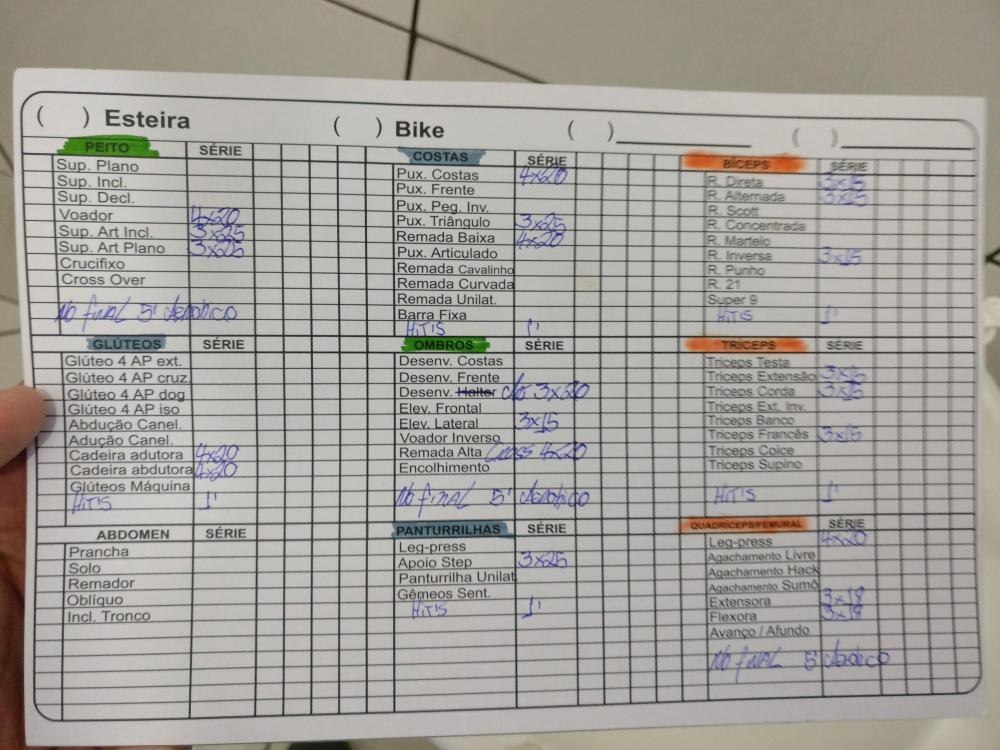 ( ) Esteira
( ) Bike
( )
( )
PEITO SÉRIE
Sup. Plano
Sup. Incl.
Sup. Decl.
Voador 4x20
Sup. Art Incl. 3x25
Sup. Art Plano 3x25
Crucifixo
Cross Over
No final 5' aeróbico
COSTAS SÉRIE
Pux. Costas 4x20
Pux. Frente
Pux. Peg. Inv.
Pux. Triângulo 3x25
Remada Baixa 4x20
Pux. Articulado
Remada Cavalinho
Remada Curvada
Remada Unilat.
Barra Fixa
HiTiS 1'
BÍCEPS SÉRIE
R. Direta 3x15
R. Alternada 3x15
R. Scott
R. Concentrada
R. Martelo
R. Inversa 3x15
R. Punho
R. 21
Super 9
HiTiS 1'
GLÚTEOS SÉRIE
Glúteo 4 AP ext.
Glúteo 4 AP cruz.
Glúteo 4 AP dog
Glúteo 4 AP iso
Abdução Canel.
Adução Canel.
Cadeira adutora 4x20
Cadeira abdutora 4x20
Glúteos Máquina
HiTiS 1'
OMBROS SÉRIE
Desenv. Costas
Desenv. Frente
Desenv. Halter 3x20
Elev. Frontal
Elev. Lateral 3x15
Voador Inverso
Remada Alta Cross 4x20
Encolhimento
No final 5' aeróbico
TRÍCEPS SÉRIE
Triceps Testa
Triceps Extensão 3x15
Triceps Corda 3x15
Triceps Ext. Inv.
Triceps Banco
Triceps Francês 3x15
Triceps Coice
Triceps Supino
HiTiS 1'
ABDOMEN SÉRIE
Prancha
Solo
Remador
Oblíquo
Incl. Tronco
PANTURRILHAS SÉRIE
Leg-press
Apoio Step 3x25
Panturrilha Unilat.
Gêmeos Sent.
HiTiS 1'
QUADRÍCEPS/FEMURAL SÉRIE
Leg-press 4x20
Agachamento Livre
Agachamento Hack
Agachamento Sumô
Extensora 3x18
Flexora 3x18
Avanço / Afundo
No final 5' aeróbico